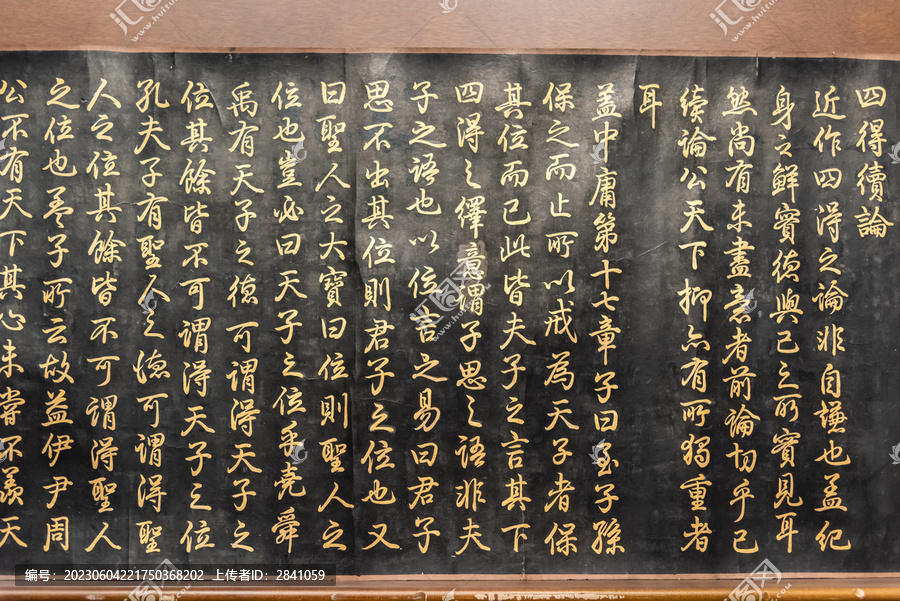 四得續論
近作四得之論非自謙也蓋紀
身之鮮實德與己之所實見耳
然尚有未盡意者前論切乎己
續論公天下抑亦有所獨重者
耳
蓋中庸第十七章子曰至子孫
保之而止所以戒為天子者保
其位而已此皆夫子之言其下
四得之繹意謂子思之語非夫
子之語也以位言之易曰君子
思不出其位則君子之位也又
曰聖人之大寶曰位則聖人之
位也豈必曰天子之位乎堯舜
禹有天子之德可謂得天子之
位其餘皆不可謂得天子之位
孔夫子有聖人之德可謂得聖
人之位其餘皆不可謂得聖人
之位也孟子所云故益伊尹周
公不有天下其心未嘗不羨天
编号：20230604221750368202 上传者ID：2841059
汇图网